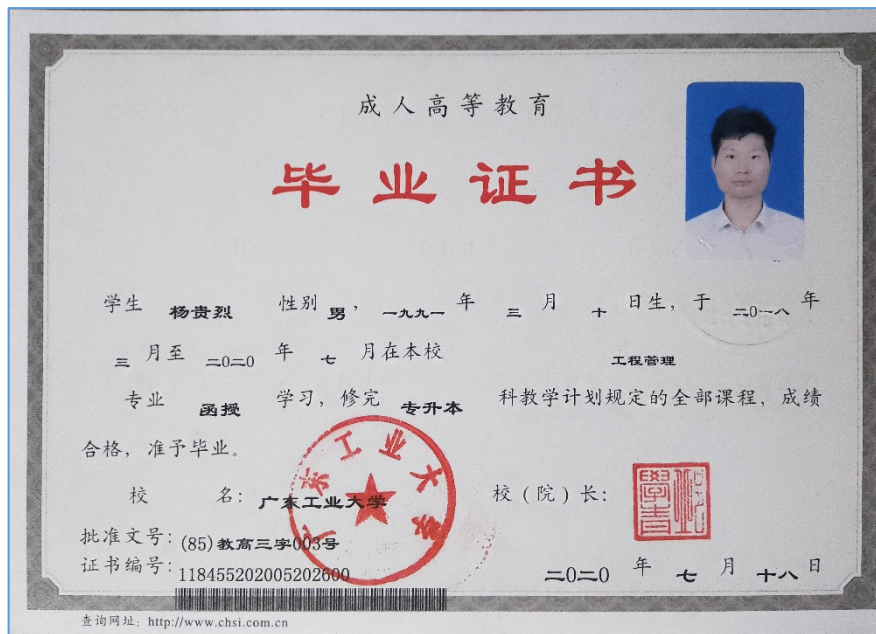 成人高等教育
毕业证书
学生 杨贵烈 性别 男，一九九一 年 三 月 十 日生，于 二〇一八 年
三 月至 二〇二〇 年 七 月在本校 工程管理
专业 函授 学习，修完 专升本 科教学计划规定的全部课程，成绩
合格，准予毕业。
校 名：广东工业大学 校（院）长：
批准文号：(85)教高三字003号
证书编号：118455202005202600
二〇二〇 年 七 月 十八 日
查询网址：http://www.chsi.com.cn
广东工业大学